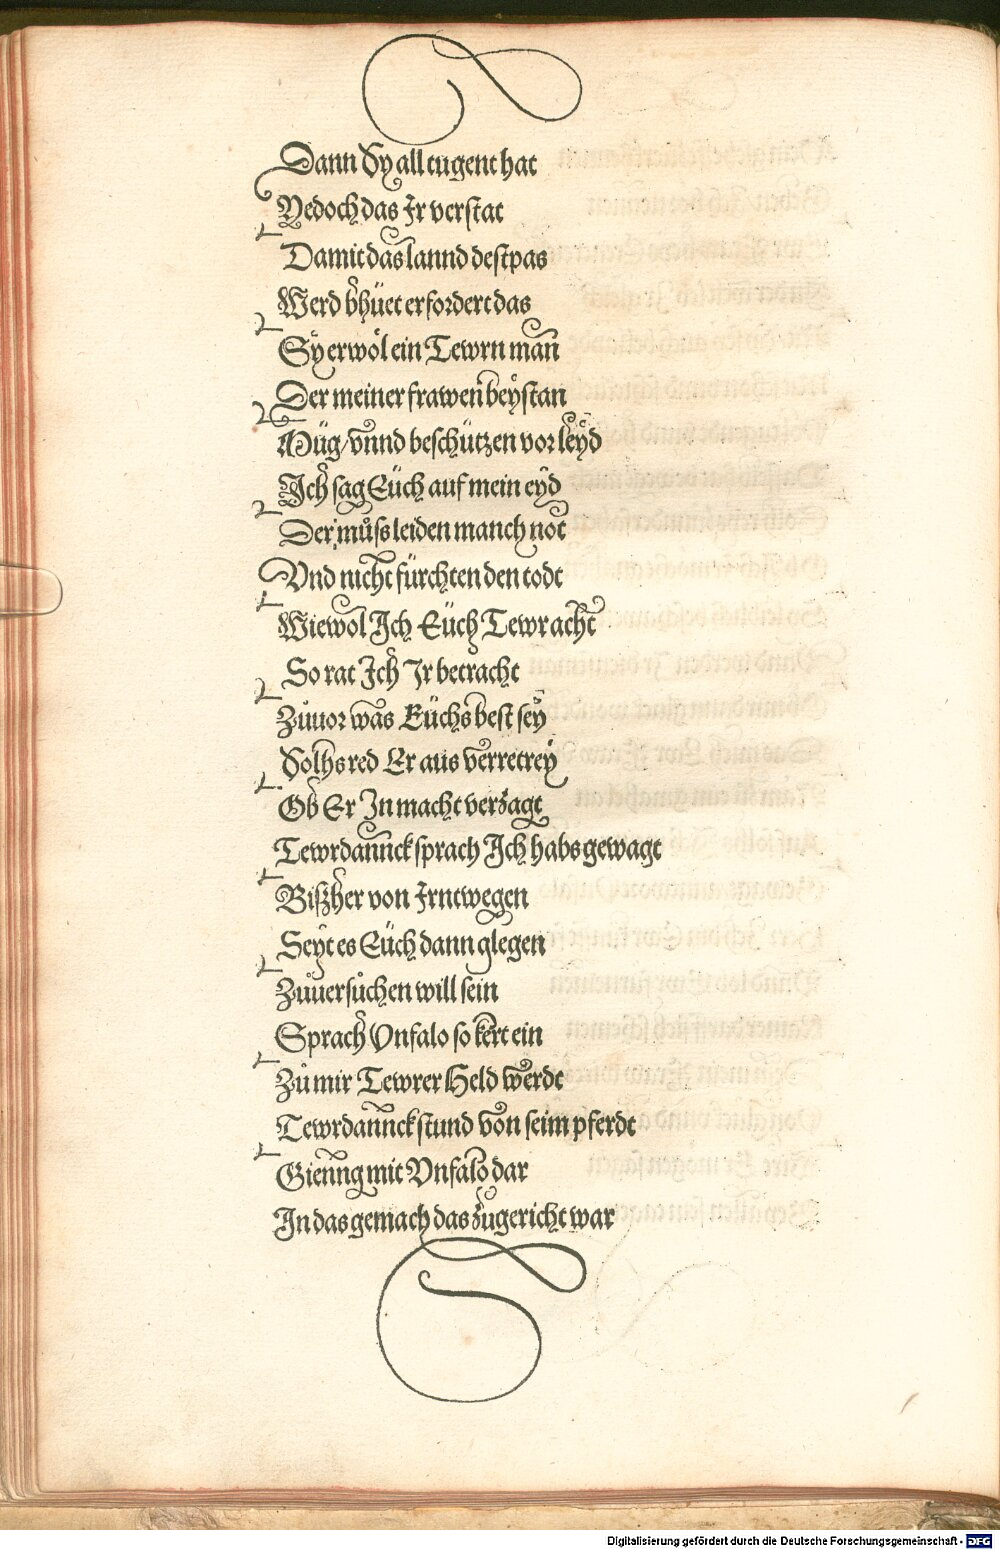 Dann Sy all tugent hat
Yedoch das Ir verstat
Damit das lannd destpas
Werd bhüet erfordert das
Sy erwöl ein Tewrn man
Der meiner frawen beystan
Müg/ vnnd beschützen vor leyd
Ich sag Eüch auf mein eyd
Der můſs leiden manch not
Vnd nicht fürchten den todt
Wiewol Ich Eüch Tewr acht
So rat Ich Ir betracht
Zůuor was Eüchs best sey
Solhs red Er aus verretrey
Ob Er In macht verzagt
Tewrdannck sprach Ich habs gewagt
Biſzher von Irntwegen
Seyt es Eüch dann glegen
Zůuersůchen will sein
Sprach Vnfalo so kert ein
Zů mir Tewrer Held werdt
Tewrdannck stund von seim pferdt
Gienng mit Vnfalo dar
In das gemach das zůgericht war
Digitalisierung gefördert durch die Deutsche Forschungsgemeinschaft - DFG